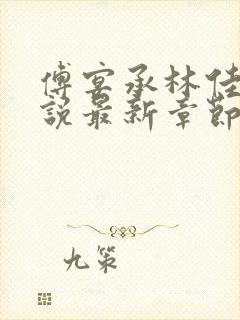 傅宴承林佳
說最新章節
九策